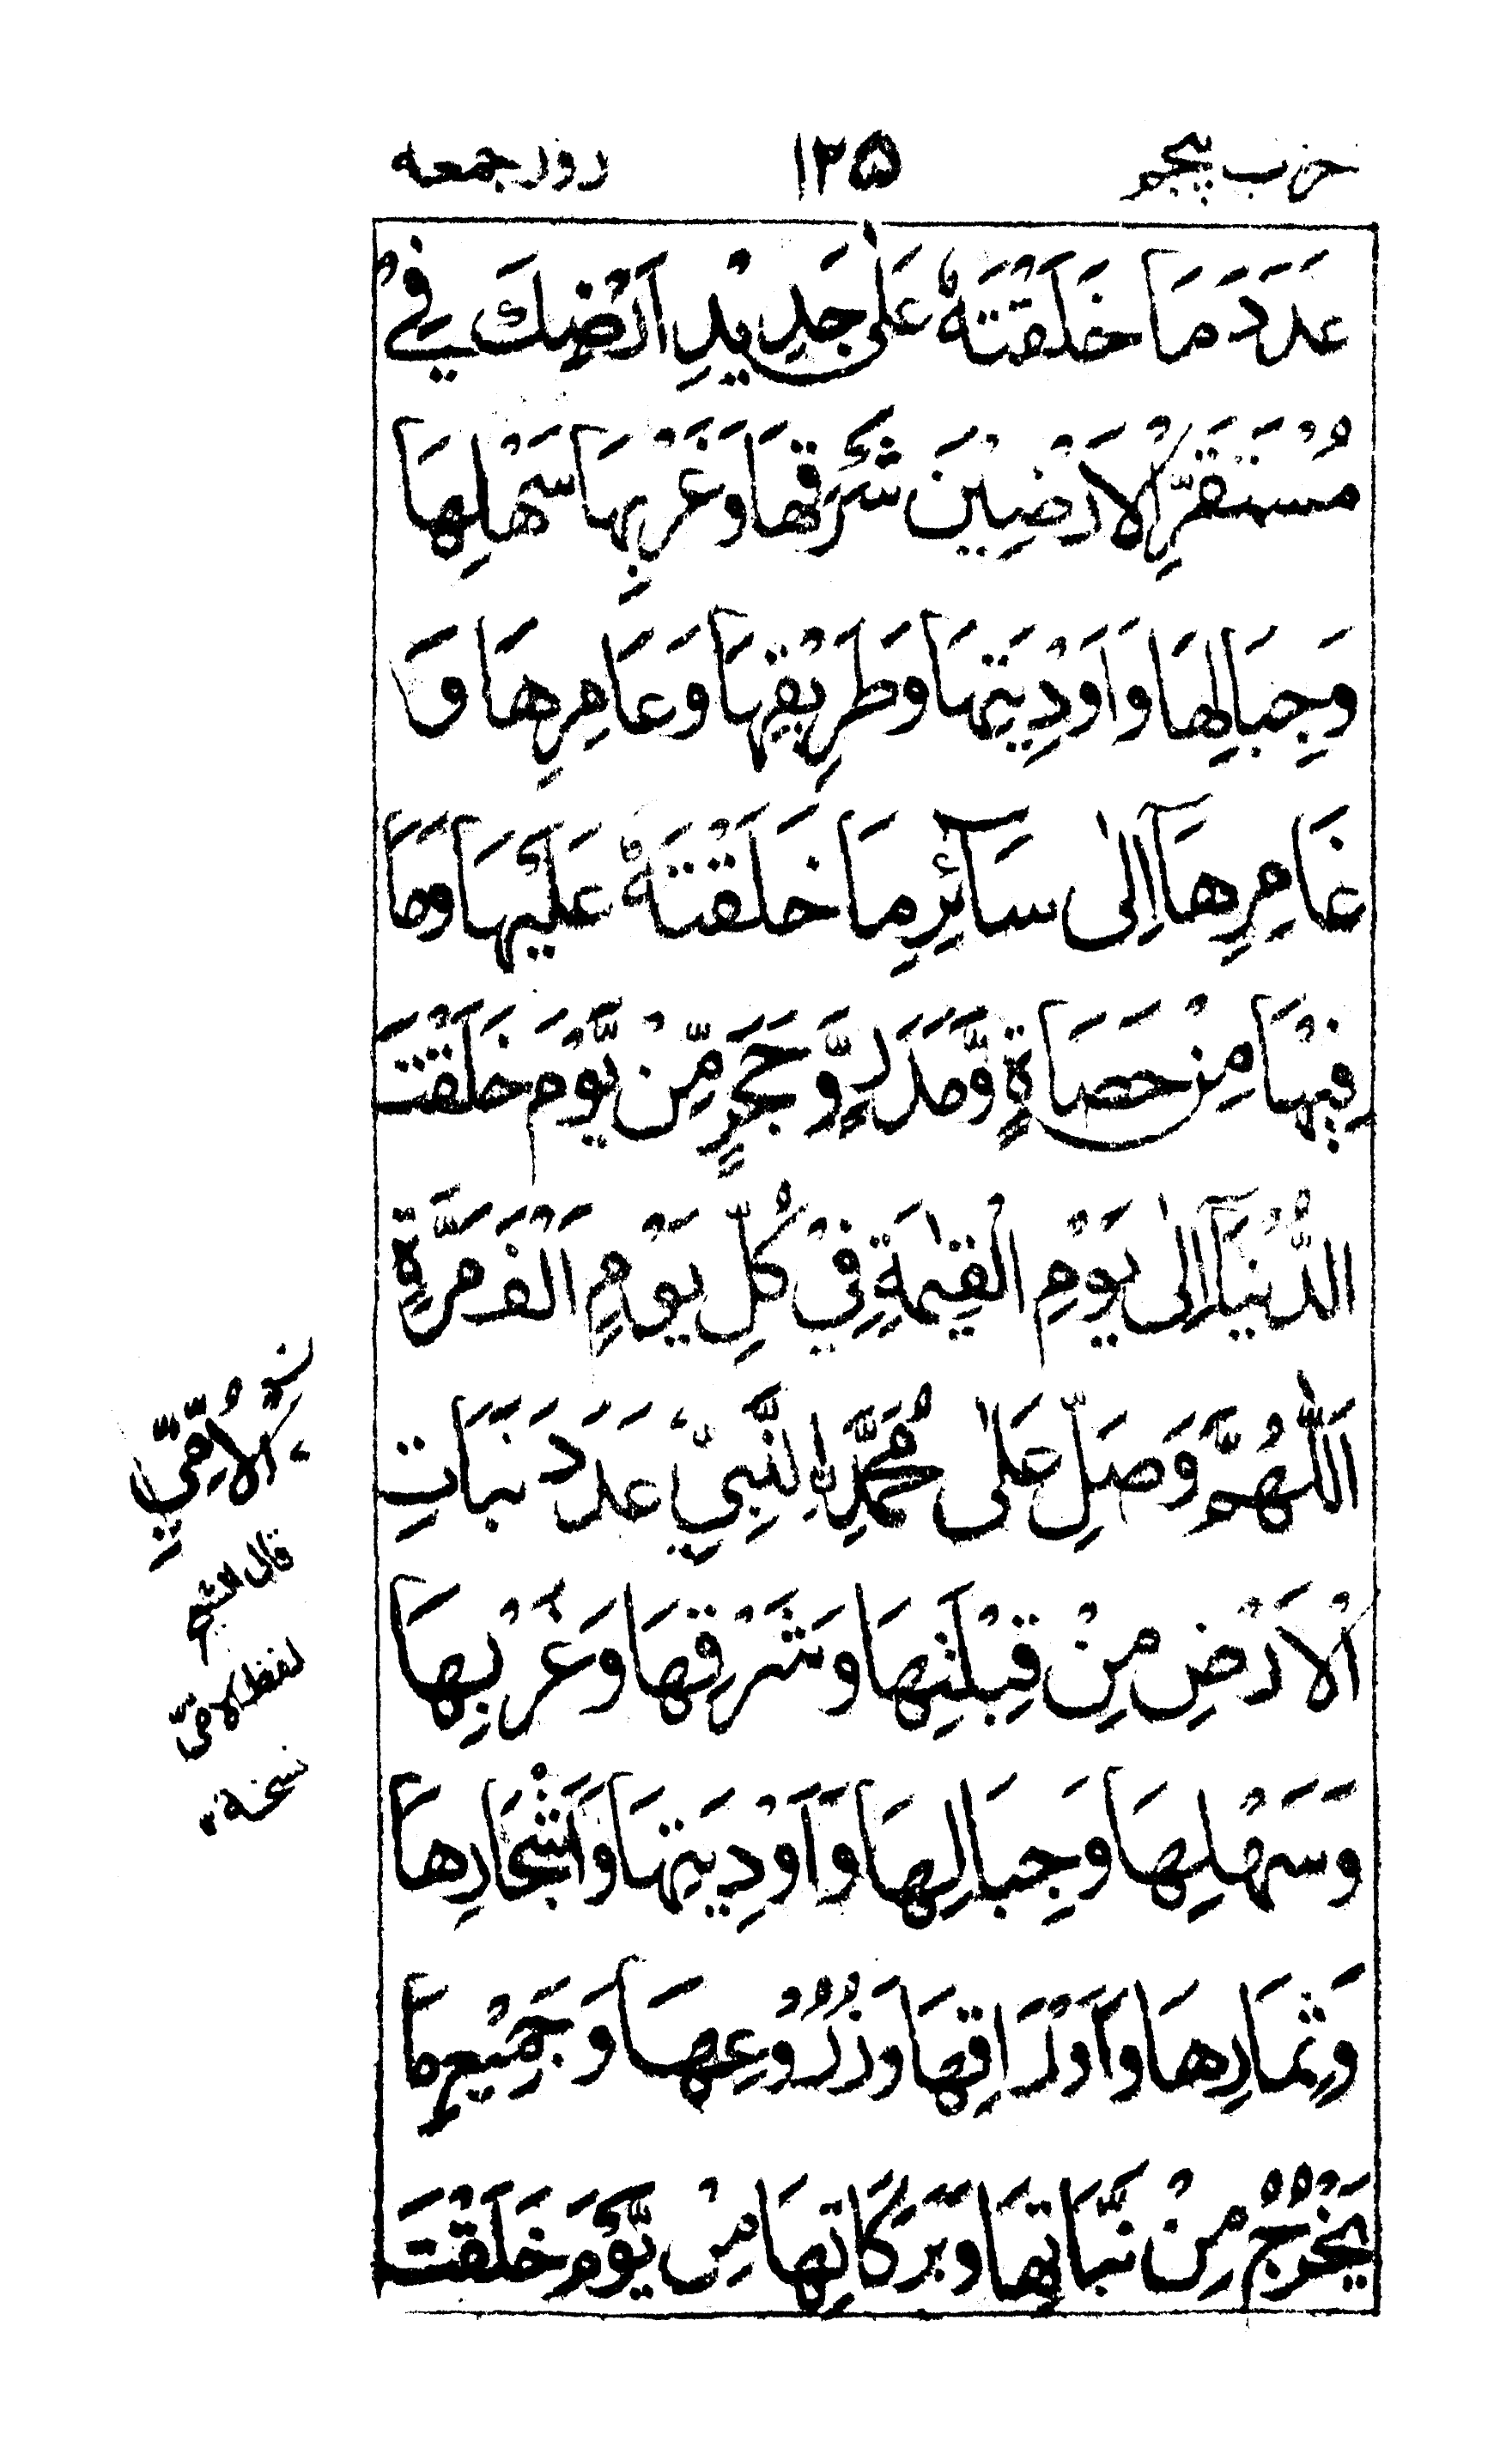 حزب پنجم ۱۲۵ روز جمعه
عَدَدَ مَا خَلَقْتَهٗ عَلٰى جَدِيْدِ اَرْضِكَ فِيْ
مُسْتَقَرِّ الْاَرْضِيْنَ شَرْقِهَا وَغَرْبِهَا سَهْلِهَا
وَجِبَالِهَا وَاَوْدِيَتِهَا وَطَرِيْقِهَا وَعَامِرِهَا وَ
غَامِرِهَآ اِلٰى سَآئِرِ مَا خَلَقْتَهٗ عَلَيْهَا وَمَا
فِيْهَا مِنْ حَصَاةٍ وَّمَدَرٍ وَّحَجَرٍ مِّنْ يَّوْمِ خَلَقْتَ
الدُّنْيَآ اِلٰى يَوْمِ الْقِيٰمَةِ فِيْ كُلِّ يَوْمٍ اَلْفَ مَرَّةٍ
اَللّٰهُمَّ وَصَلِّ عَلٰى مُحَمَّدِ نِ النَّبِيِّ عَدَدَ نَبَاتِ
الْاَرْضِ مِنْ قِبْلَتِهَا وَشَرْقِهَا وَغَرْبِهَا
وَسَهْلِهَا وَجِبَالِهَا وَاَوْدِيَتِهَا وَاَشْجَارِهَا
وَثِمَارِهَا وَاَوْرَاقِهَا وَزُرُوْعِهَا وَجَمِيْعِ مَا
يَخْرُجُ مِنْ نَّبَاتِهَا وَبَرَكَاتِهَا مِنْ يَّوْمِ خَلَقْتَ
الْاُمِّيِّ
قال الشيخ
لفظ الامّيّ
نسخة